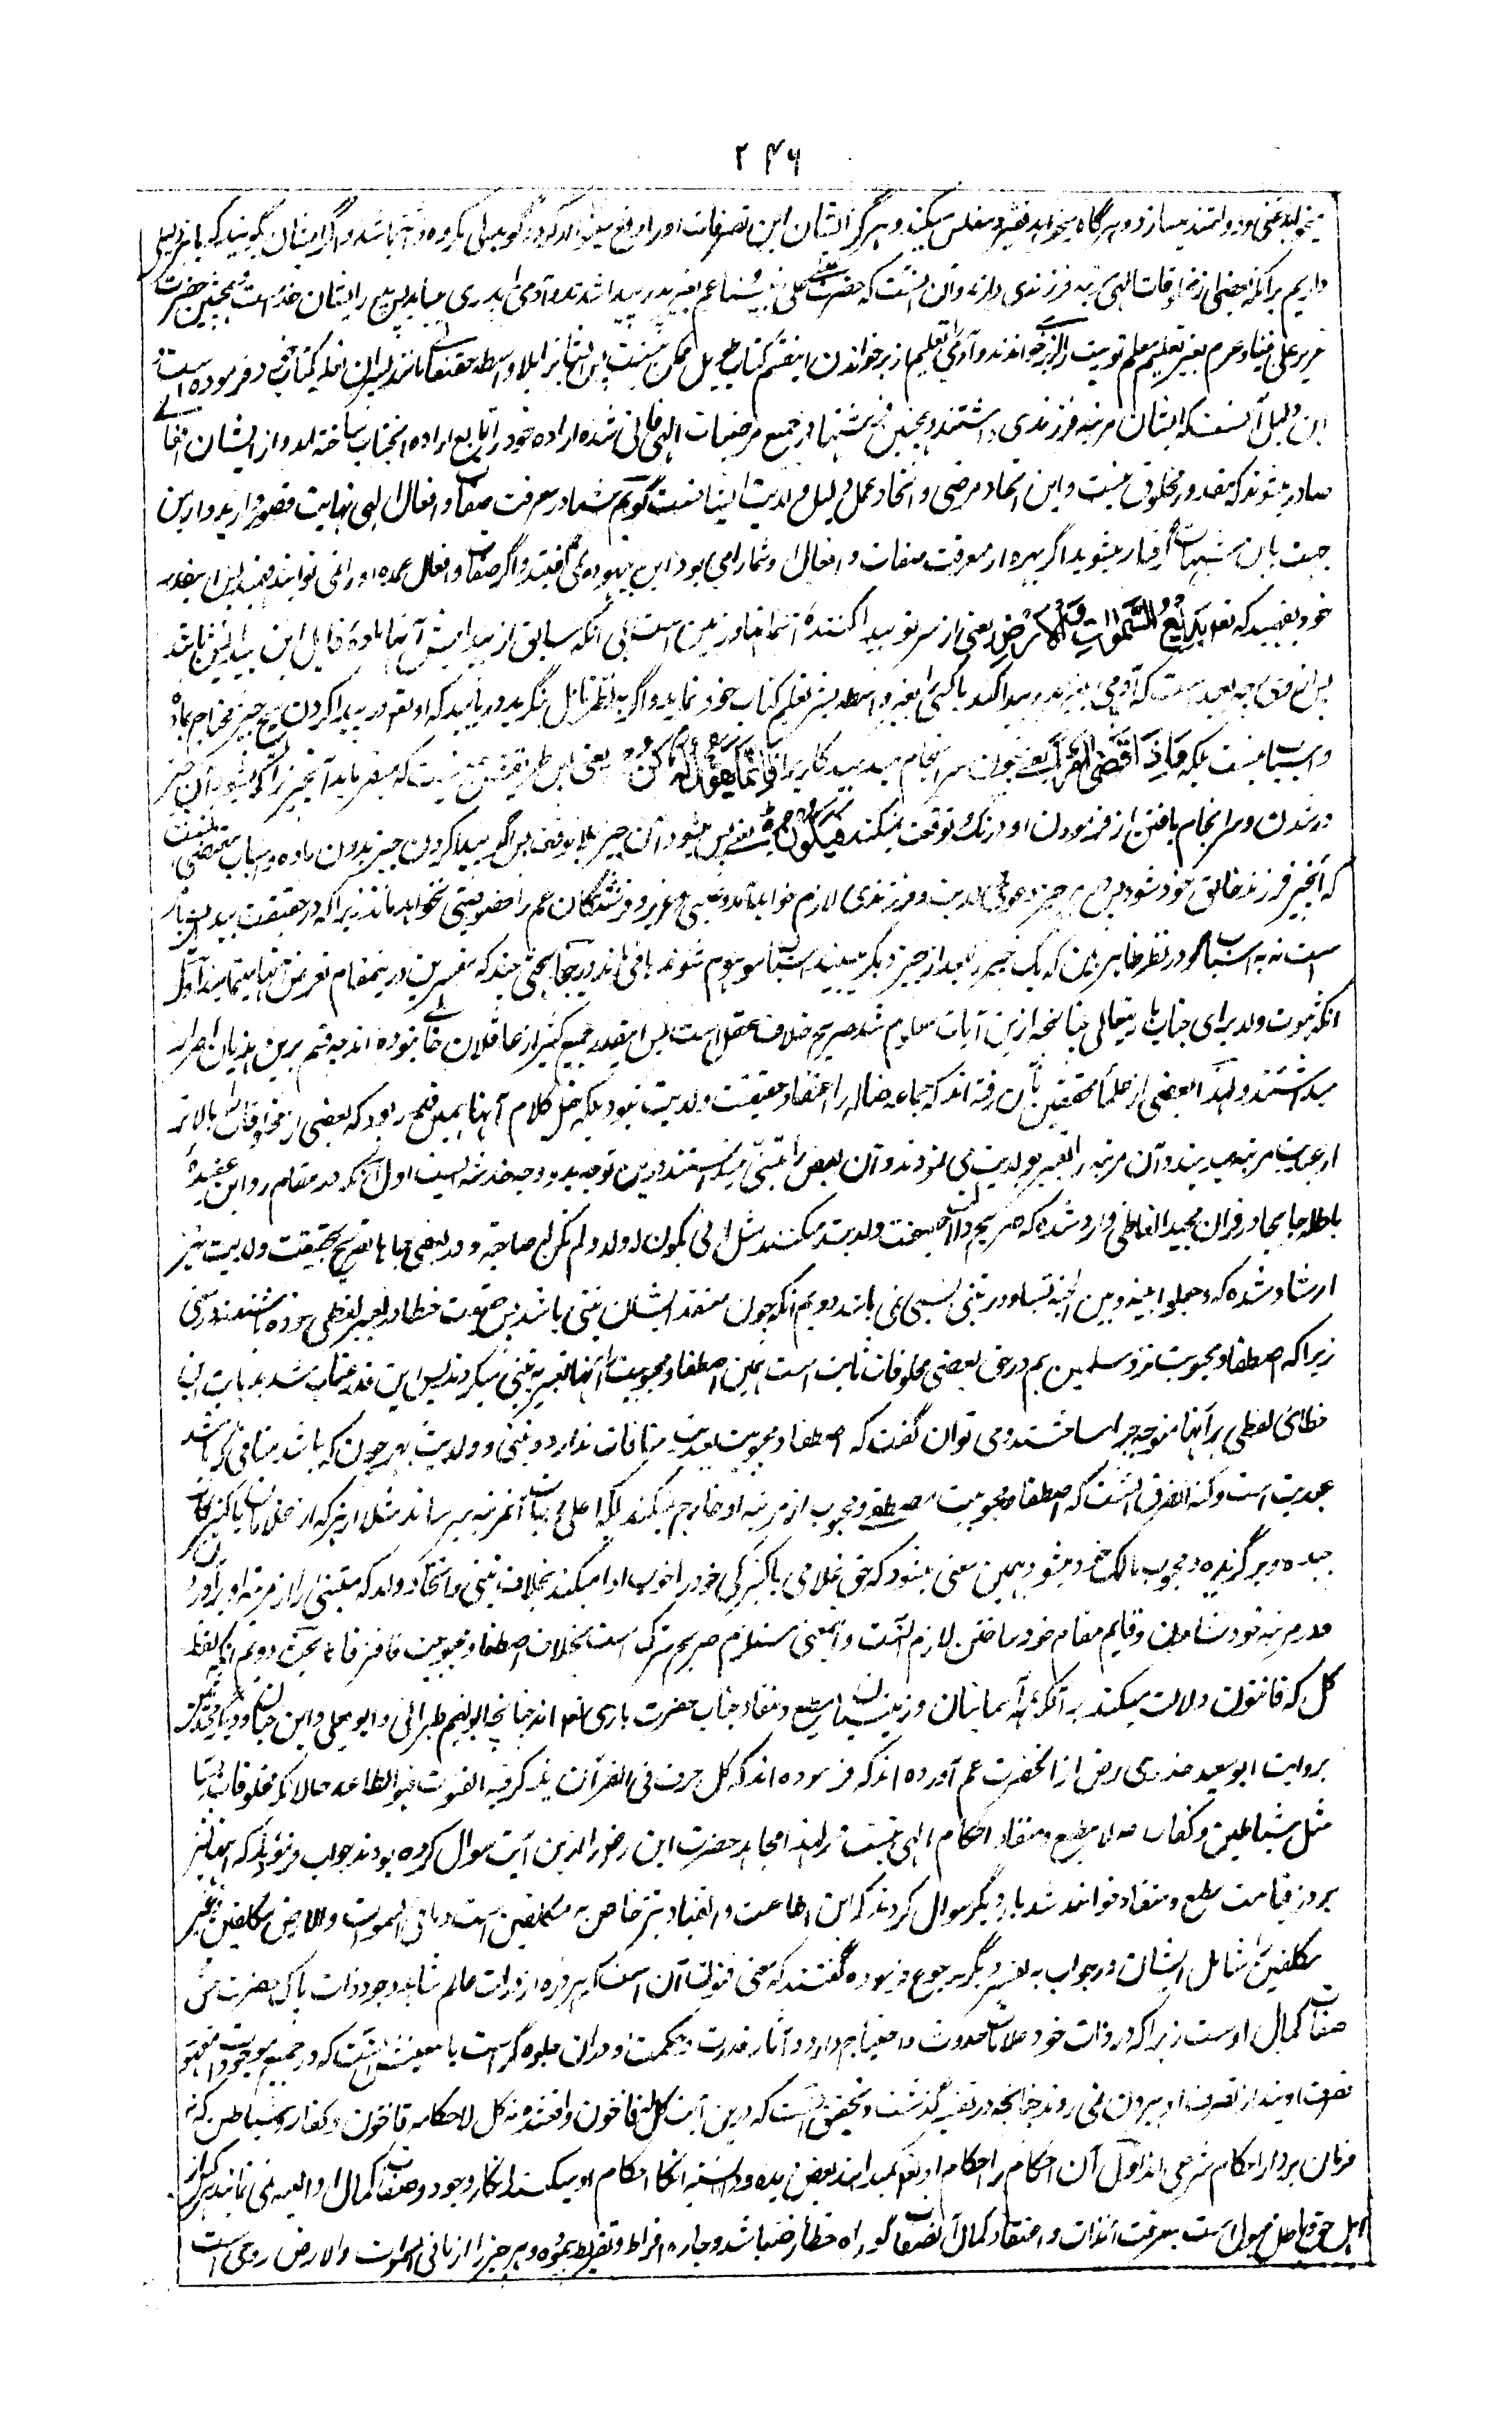 ۲۴۶
میخواهد غنی و دولتمند میسازد و هرگاه میخواهد فقیر و مفلس میکند و هرگز ایشان این تصرفات او را دفع نمیتوانند کرد و اگر ایشان بگویند که باین دلیل
داریم که بعضی از مخلوقات الهی مرتبه فرزندی دارند و آن اینست که حضرت عیسی علی نبینا و عم بغیر پدر پیدا شدند و آدمی را پدری میباید پس پدر ایشان خداست و همچنین حضرت
عزیر علی نبینا و عم بغیر تعلیم معلم توریت را از بر خواندند و آدمی را بی تعلیم از بر خواندن اینقسم کتاب طویل ممکن نیست پس ایشان را بلا واسطه حقتعالی مانند پسران
این دلیل آنست که ایشان مرتبه فرزندی داشتند و همچنین فرشتها در جمیع مرضیات الهی فانی شده اراده خود را تابع اراده آنجناب ساخته اند و از ایشان افعالی
صادر میشوند که مقدور مخلوق نیست و این اتحاد مرضی و اتحاد عمل دلیل ولدیت اینهاست گوئیم شما در معرفت صفات و افعال الهی نهایت قصور دارید و ازین
جهت باین شبهات گرفتار میشوید اگر بهره از معرفت صفات و افعال او شما را می بود این بیهوده نمی گفتید و اگر صفات و افعال عمده او را نمی توانید فهمید پس اینقدر
خود بفهمید که او بَدِیعُ السَّمٰوَاتِ وَالْاَرْضِ یعنی از سر نو پیدا کننده آسمانها و زمین است بی آنکه سابق از پیدایش آنها ماده قابل این پیدایش باشد
پس از وی چه بعید است که آدمی بغیر پدر پیدا کند یا کسی را بغیر واسطه بشر تعلیم کتاب خود نماید و اگر به نظر تامل بنگرید دریابید که او تعالی در پیدا کردن هیچ چیز محتاج ماده
و اسباب نیست بلکه وَاِذَا قَضٰی اَمْرًا یعنی چون سرانجام میدهد کاریرا فَاِنَّمَا یَقُوْلُ لَهٗ کُنْ یعنی پس جز این نیست که میفرماید آنچیز را که بشو و آن چیز
در شدن و سرانجام یافتن از فرمودن او درنگ و توقف نمیکند فَیَکُوْنُ یعنی پس میشود آن چیز بلا توقف پس اگر پیدا کردن چیز بدون ماده و اسباب مقتضی آنست
که آنچیز فرزند خالق خود شود پس در هر چیز دعوی ولدیت و فرزندی لازم خواهد آمد و عیسی و عزیر و فرشتگان عم را خصوصیتی نخواهد ماند زیرا که در حقیقت پیدایش
است نه به اسباب و در نظر ظاهر بین که یک چیز را بعد از چیز دیگر می بیند اسباب موهوم شوند باقی ماند درینجا بحثی چند که مفسرین درینمقام تعرض آنها مینمایند اول
آنکه ثبوت ولد برای جناب باریتعالی چنانچه ازین آیات معلوم شد صریح خلاف عقل است پس اینقدر جمع کثیر از عاقلان برین هذیان اصرار
میداشتند و لهذا بعضی از علماء محققین بآن رفته اند که جماعه ضاله را اعتقاد حقیقت ولدیت نبود بلکه اصل کلام آنها همین قدر بود که بعضی از مخلوقات را بالاتر
از عبدیت مرتبه میدادند و آن مرتبه را تعبیر بولدیت می نمودند و آن بعض را متبنی میدانستند درین توجیه بدو وجه خدشه است اول آنکه در مقام رد این عقیدهٔ
باطله جابجا در قرآن مجید الفاظی وارد شده که صریح دلالت بر حقیقت ولدیت میکنند مثل انی یکون له ولد ولم تکن له صاحبة و در بعضی جاها تصریح بحقیقت ولدیت نیز
ارشاد شده که وجعلوا بینه وبین الجنة نسبا و در تبنی نسبی نمی باشد دویم آنکه چون معتقد ایشان تبنی باشد پس خطا در تعبیر لفظی بوده باشند نه در معنی
زیرا که اصطفا و محبوبیت نزد مسلمین هم در حق بعضی مخلوقات ثابت است همین اصطفا و محبوبیت را آنها تعبیر به تبنی میکردند پس این قدر عتاب شدید بابت این
خطای لفظی بر آنها متوجه چرا ساختند و می توان گفت که اصطفا و محبوبیت بعبدیت منافات ندارد و تبنی و ولدیت بهر چون که باشد منافی
عبدیت است و کنه الفرق اینست که اصطفا و محبوبیت مصطفی و محبوب را از مرتبه او خارج نمیکند بلکه اعلی درجات آنمرتبه میرساند مثلا هر که از غلامان یا کنیزکان
چیده و برگزیده و محبوب مالک خود میشود بهمین معنی میشود که حق غلامی یا کنیزکی خود را خوب ادا میکند بخلاف تبنی و اتخاذ ولد که متبنی را از مرتبه او برآوردن
و در مرتبه خود نشاندن و قایم مقام خود ساختن لازم آنست و اینمعنی مستلزم صریح شرک است بخلاف اصطفا و محبوبیت فافترقا بحث دویم آنکه لفظ
کل که قانتون دلالت میکند بر آنکه همه آسمانیان و زمینیان مطیع و منقاد جناب حضرت باری اند چنانچه ابونعیم طبرانی و ابویعلی و ابن حبان و دیگر محدثین
بروایت ابوسعید خدری رض از آنحضرت عم آورده اند که فرموده اند که کل حرف فی القرآن یذکر فیه القنوت فهو الطاعه حالانکه مخلوقات بسیار
مثل شیاطین و کفار اصلا مطیع و منقاد احکام الهی نیستند لهذا مجاهد حضرت ابن رض را ازین آیت سوال کرده بودند جواب فرمودند که اینها نیز
بروز قیامت مطیع و منقاد خواهند شد بار دیگر سوال کردند که این اطاعت و انقیاد نیز خاص به مکلفین است و ما فی السموات والارض مکلفین و غیر
مکلفین را شامل ایشان در جواب به تفسیر دیگر رجوع فرموده گفتند که معنی قنوت آن است که هر ذره از ذرات عالم شاهد وجود ذات پاک حضرت حق
صفات کمال اوست زیرا که در ذات خود علامات حدوث و احتیاج دارد و آثار قدرت و حکمت او در آن جلوه گر است یا معنیش اینست که در جمیع موجودات مقهور
تصرف اویند از تصرف او بیرون نمی روند چنانچه در تفسیر گذشت و تحقیق آنست که درین آیت کل له قانتون واقع شده نه کل لاحکامه قانتون و کفار و شیاطین که نه
فرمان بردار احکام شرعی اند اول آن احکام را احکام او تعالی نمیدانند بعض دیده و دانسته انکار احکام او میکنند انکار وجود و صفات کمال او البته نمی نمایند
اهل حق و باطل مجبول است بمعرفت آنذات و اعتقاد کمال آن صفات گو راه خطا رفته باشد و جاده افراط و تفریط پیموده و هر چیز را از مافی السموات والارض روحی است